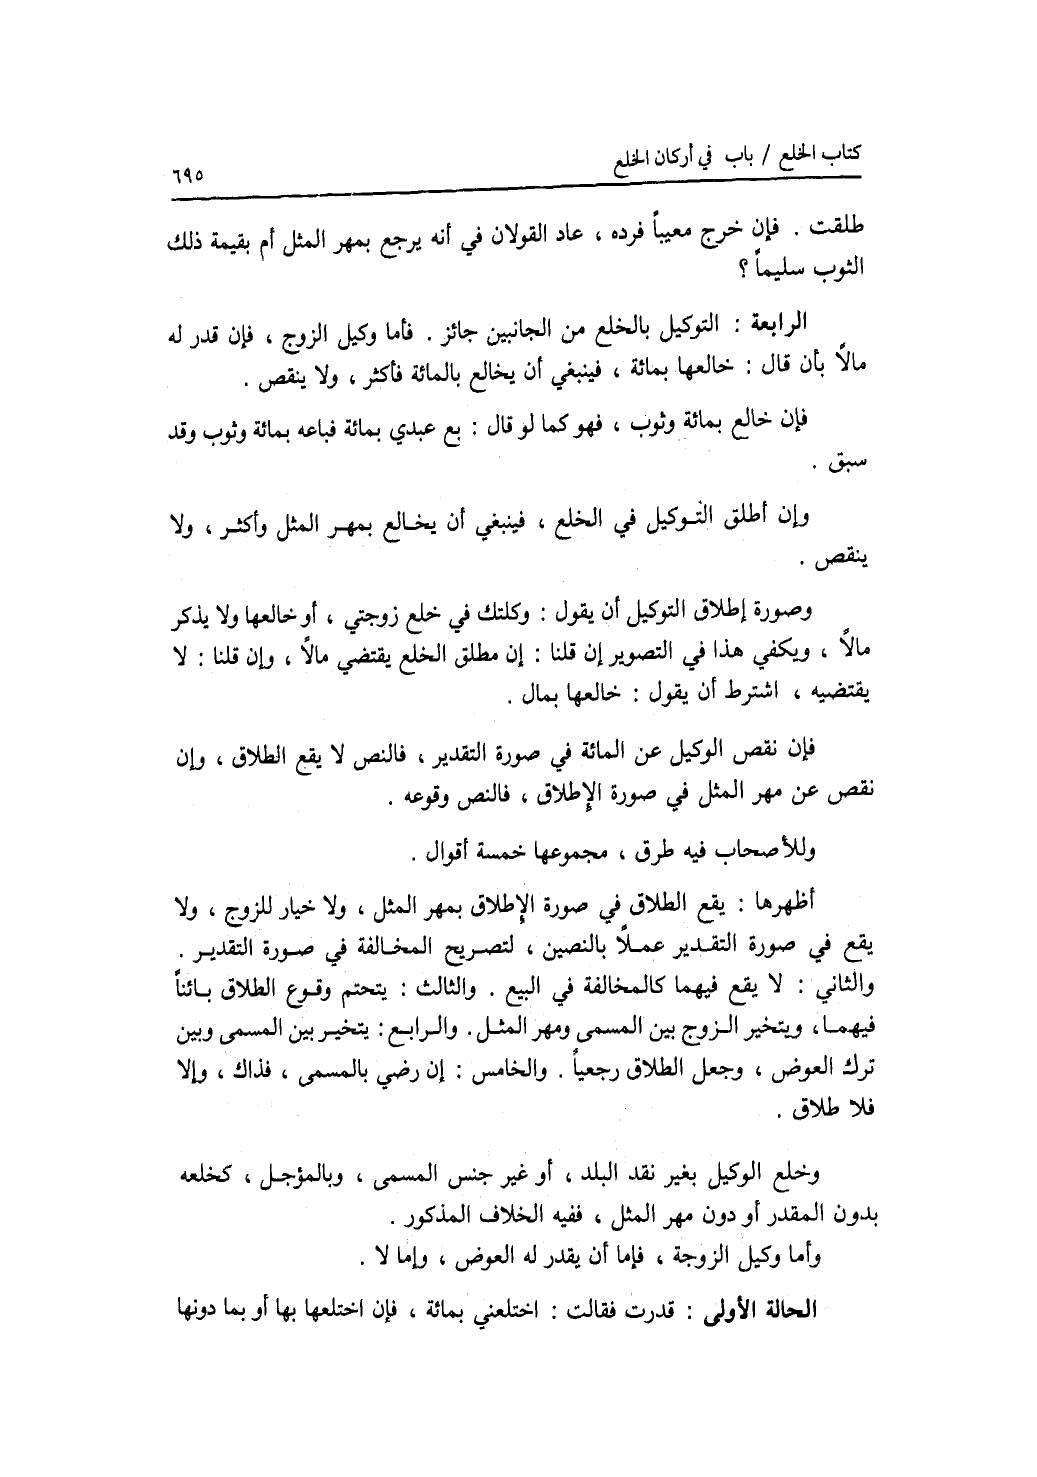 كتاب الخلع / باب في أركان الخلع
٦٩٥
طلقت . فإن خرج معيباً فرده ، عاد القولان في أنه يرجع بمهر المثل أم بقيمة ذلك
الثوب سليماً ؟
الرابعة : التوكيل بالخلع من الجانبين جائز . فأما وكيل الزوج ، فإن قدر له
مالاً بأن قال : خالعها بمائة ، فينبغي أن يخالع بالمائة فأكثر ، ولا ينقص .
فإن خالع بمائة وثوب ، فهو كما لو قال : بع عبدي بمائة فباعه بمائة وثوب وقد
سبق .
وإن أطلق التوكيل في الخلع ، فينبغي أن يخالع بمهر المثل وأكثر ، ولا
ينقص .
وصورة إطلاق التوكيل أن يقول : وكلتك في خلع زوجتي ، أو خالعها ولا يذكر
مالاً ، ويكفي هذا في التصوير إن قلنا : إن مطلق الخلع يقتضي مالاً ، وإن قلنا : لا
يقتضيه ، اشترط أن يقول : خالعها بمال .
فإن نقص الوكيل عن المائة في صورة التقدير ، فالنص لا يقع الطلاق ، وإن
نقص عن مهر المثل في صورة الإطلاق ، فالنص وقوعه .
وللأصحاب فيه طرق ، مجموعها خمسة أقوال .
أظهرها : يقع الطلاق في صورة الإطلاق بمهر المثل ، ولا خيار للزوج ، ولا
يقع في صورة التقدير عملاً بالنصين ، لتصريح المخالفة في صورة التقدير .
والثاني : لا يقع فيهما كالمخالفة في البيع . والثالث : يتحتم وقوع الطلاق بائناً
فيهما، ويتخير الزوج بين المسمى ومهر المثل. والرابع: يتخير بين المسمى وبين
ترك العوض ، وجعل الطلاق رجعياً . والخامس : إن رضي بالمسمى ، فذاك ، وإلا
فلا طلاق .
وخلع الوكيل بغير نقد البلد ، أو غير جنس المسمى ، وبالمؤجل ، كخلعه
بدون المقدر أو دون مهر المثل ، ففيه الخلاف المذكور .
وأما وكيل الزوجة ، فإما أن يقدر له العوض ، وإما لا .
الحالة الأولى : قدرت فقالت : اختلعني بمائة ، فإن اختلعها بها أو بما دونها